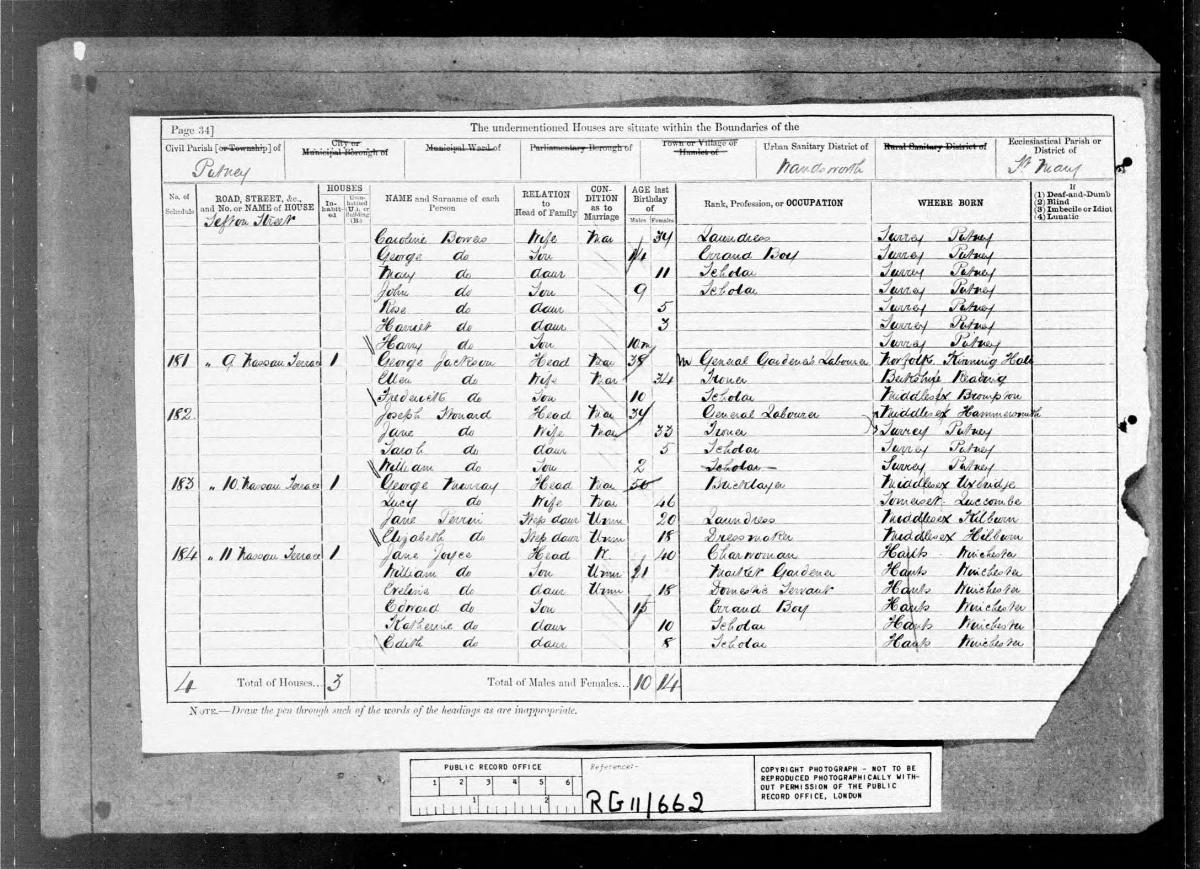 Page 34] The undermentioned Houses are situate within the Boundaries of the
Civil Parish [or Township] of City or Municipal Borough of Municipal Ward of Parliamentary Borough of Town or Village or Hamlet of Urban Sanitary District of Rural Sanitary District of Ecclesiastical Parish or District of
Putney Wandsworth St Mary
No. of Schedule ROAD, STREET, &c., and No. or NAME of HOUSE HOUSES In-habit-ed Unin-habited (U.), or Building (B.) NAME and Surname of each Person RELATION to Head of Family CON-DITION as to Marriage AGE last Birthday of Males Females Rank, Profession, or OCCUPATION WHERE BORN If (1) Deaf-and-Dumb (2) Blind (3) Imbecile or Idiot (4) Lunatic
Sefton Street
Caroline Bowers Wife Mar 34 Laundress Surrey Putney
George do Son 14 Errand Boy Surrey Putney
Mary do daur 11 Scholar Surrey Putney
John do Son 9 Scholar Surrey Putney
Rose do daur 5 Surrey Putney
Harriet do daur 3 Surrey Putney
Harry do Son 10m Surrey Putney
181 " 9 Nassau Terrace 1 George Jackson Head Mar 38 General Gardener's Labourer Norfolk Kenning Hall
Ellen do Wife Mar 34 Ironer Berkshire Reading
Frederick do Son 10 Scholar Middlesex Brompton
182 Joseph Head Mar 34 General Labourer Middlesex Hammersmith
Jane do Wife Mar 33 Ironer Surrey Putney
Sarah do daur 5 Scholar Surrey Putney
William do Son 2 Scholar Surrey Putney
183 " 10 Nassau Terrace 1 George Murray Head Mar 50 Bricklayer Middlesex Uxbridge
Lucy do Wife Mar 46 Somerset Luccombe
Jane Perrin Step daur Unm 20 Laundress Middlesex Kilburn
Elizabeth do Step daur Unm 18 Dressmaker Middlesex Kilburn
184 " 11 Nassau Terrace 1 Jane Joyce Head W. 40 Charwoman Hants Winchester
William do Son Unm 21 Market Gardener Hants Winchester
Eveline do daur Unm 18 Domestic Servant Hants Winchester
Edward do Son 15 Errand Boy Hants Winchester
Katherine do daur 10 Scholar Hants Winchester
Edith do daur 8 Scholar Hants Winchester
4 Total of Houses... 3 Total of Males and Females... 10 14
NOTE.—Draw the pen through such of the words of the headings as are inappropriate.
PUBLIC RECORD OFFICE
1 2 3 4 5 6
1 2
Reference:-
RG 11/662
COPYRIGHT PHOTOGRAPH - NOT TO BE
REPRODUCED PHOTOGRAPHICALLY WITH-
OUT PERMISSION OF THE PUBLIC
RECORD OFFICE, LONDON